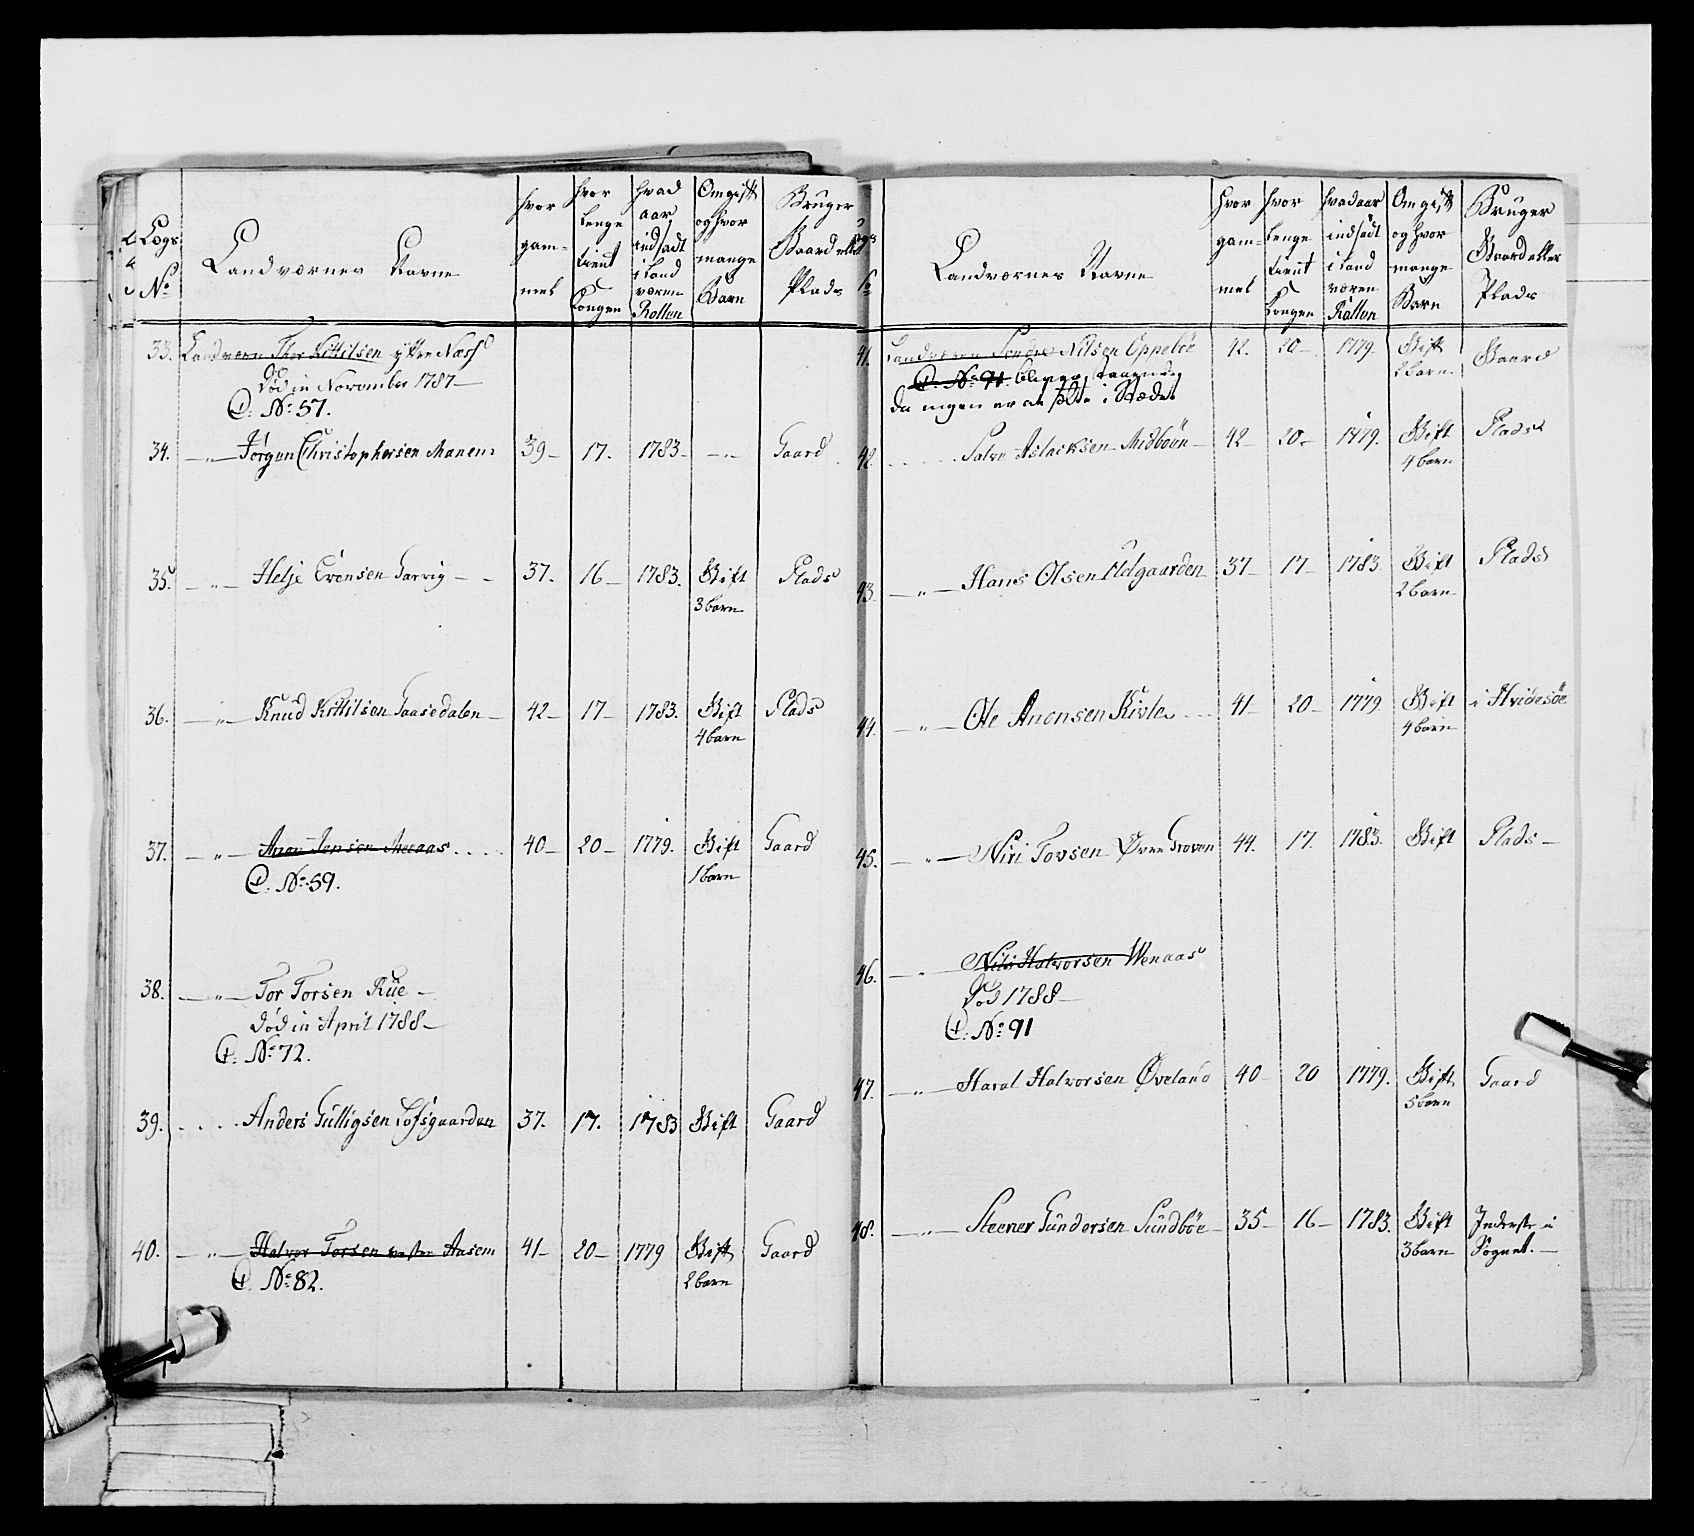 Lægs No
Landværnes Navne
hvor gam- mel
hvor lenge tient Kongen
hvad aar indsadt i Land væren Rollen
Om gift og hvor mange Barn
Bruger Gaard eller Plads
33. Landværn Thor Kittilsen yttre Næss
Død in November 1787 —
No: 57.
34. —"— Jörgen Christophersen Manem 39 — 17. 1783 — —"— Gaard
35. —"— Helje Evensen Garvig — 37. 16 — 1783. Gift Plads
3 barn
36. —"— Knud Kittilsen Gaasedalen — 42 — 17 — 1783. Gift Plads
4 barn
37. —"— Anon Jensen Meaas 40 — 20 — 1779. Gift Gaard
1 barn
No: 59.
38. —"— Tor Torsen Rue —
död in April 1788 —
No: 72.
39. Anders Gulligsen Lofsgaarden 37. 17. 1783 Gift Gaard
40. —"— Halvor Torsen vestre Aasem 41 — 20 — 1779 Gift Gaard
2 barn
No: 82.
Landværnes Navne
hvor gam- mel
hvor lenge tient Kongen
hvad aar indsadt i Land væren Rollen
Om gift og hvor mange Barn
Bruger Gaard eller Plads
41. Landværn Sondre Nilsen Oppeböe 42. 20 — 1779 Gift Gaard
2 barn
No: 91
da ingen er at sætte i Stædet
42. Salve Aslacksen Midböen — 42 — 20 — 1779. Gift Plads
4 barn
43. —"— Hans Olsen Udgaarden 37 — 17 — 1783 Gift Plads
2 barn
44. —"— Ole Anonsen Kivle 41 — 20 — 1779 Gift i Hvidesöe
4 barn
45. —"— Niri Tovsen Øvre Groven 44. 17. 1783. Gift Plads —
46. —"— Nils Halvorsen Wenaas
Död 1788 —
No: 91
47. —"— Haral Halvorsen Øveland 40 — 20 1779. Gift Gaard
5 barn
48. —"— Steener Gundersen Sundböe — 35 — 16 — 1783. Gift Inderste i
3 barn Sognet. —